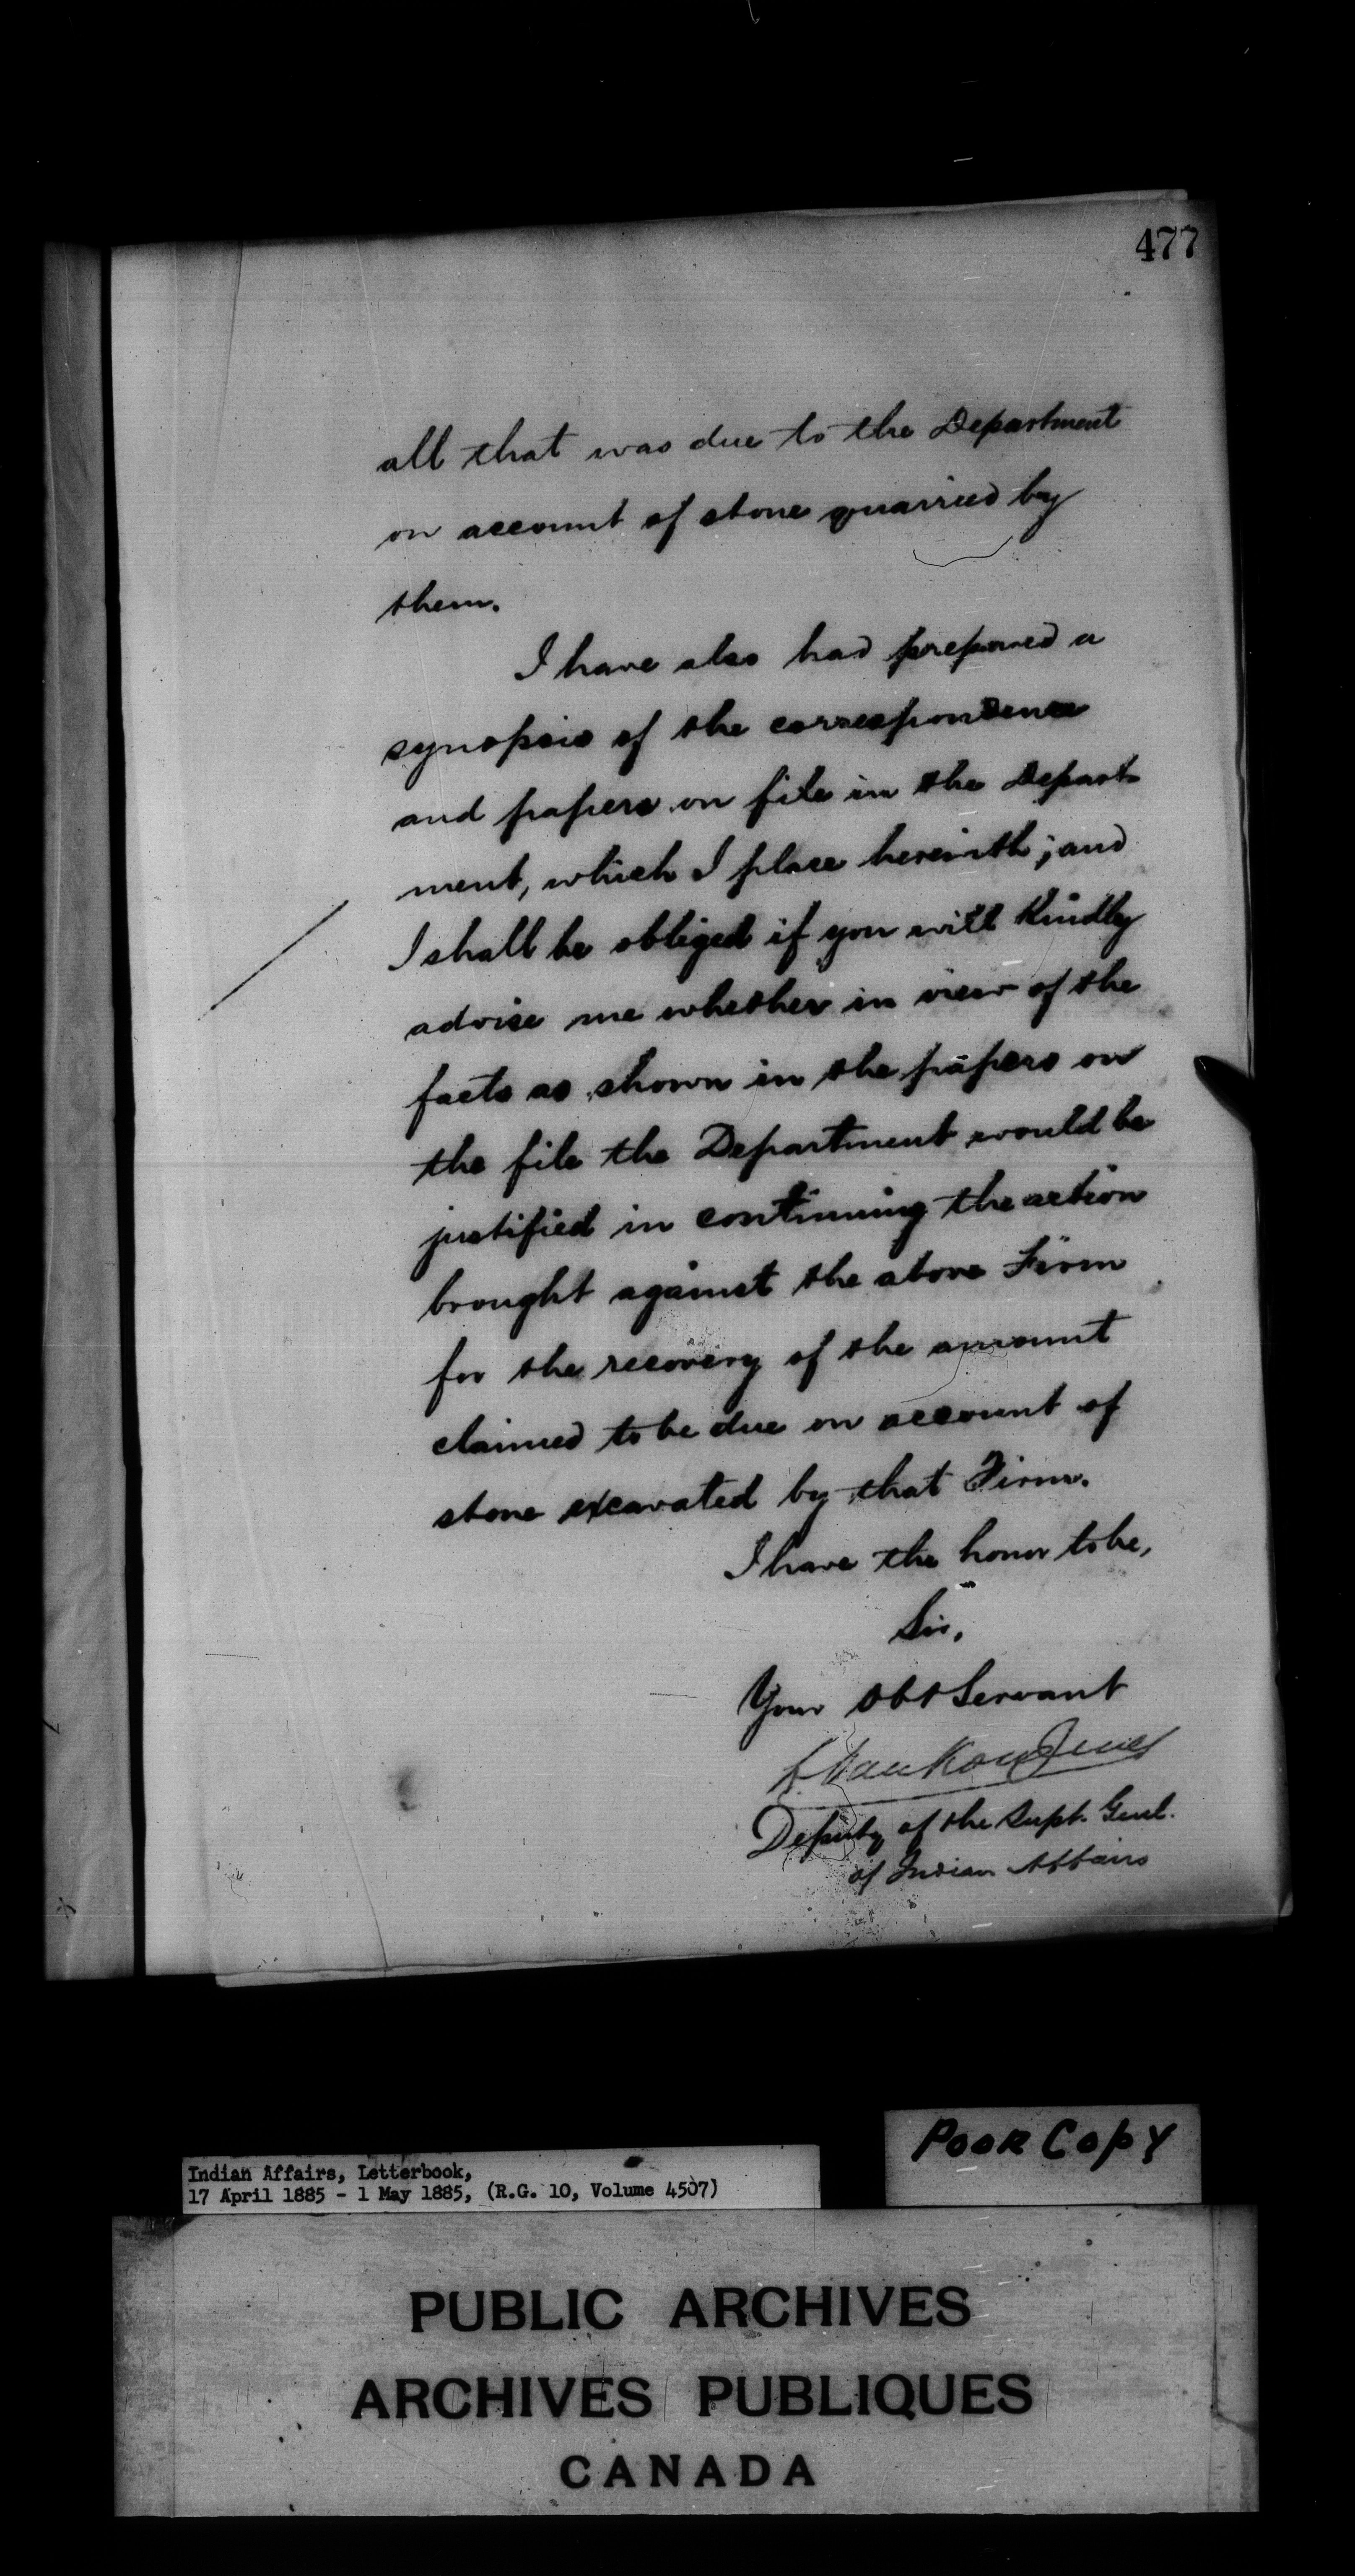 477
all that was due to the Department
on account of stone quarried by
them.
I have also had prepared a
synopsis of the correspondence
and papers on file in the Depart-
ment, which I place herewith; and
I shall be obliged if you will Kindly
advise me whether in view of the
facts as shown in the papers on
the file the Department would be
justified in continuing the action
brought against the above Firm
for the recovery of the amount
claimed to be due on account of
stone excavated by that Firm.
I have the honor to be,
Sir,
Your Obt Servant
L. VanKoughnet
Deputy of the Supt. Genl.
of Indian Affairs
Poor Copy
Indian Affairs, Letterbook,
17 April 1885 - 1 May 1885, (R.G. 10, Volume 4507)
PUBLIC ARCHIVES
ARCHIVES PUBLIQUES
CANADA